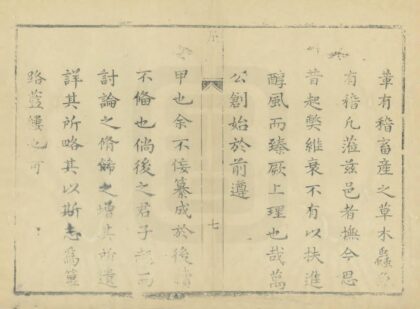 葷有稽畜產之草木蟲魚
有稽凡蒞茲邑者撫今思
昔起獘維衰不有以扶進
醇風而臻厥上理也哉萬
公創始於前遵
七
甲也余不佞纂成於後
不備也倘後之君子
討論之脩飾之增其所遺
詳其所略其以斯志為篳
路藍縷也可